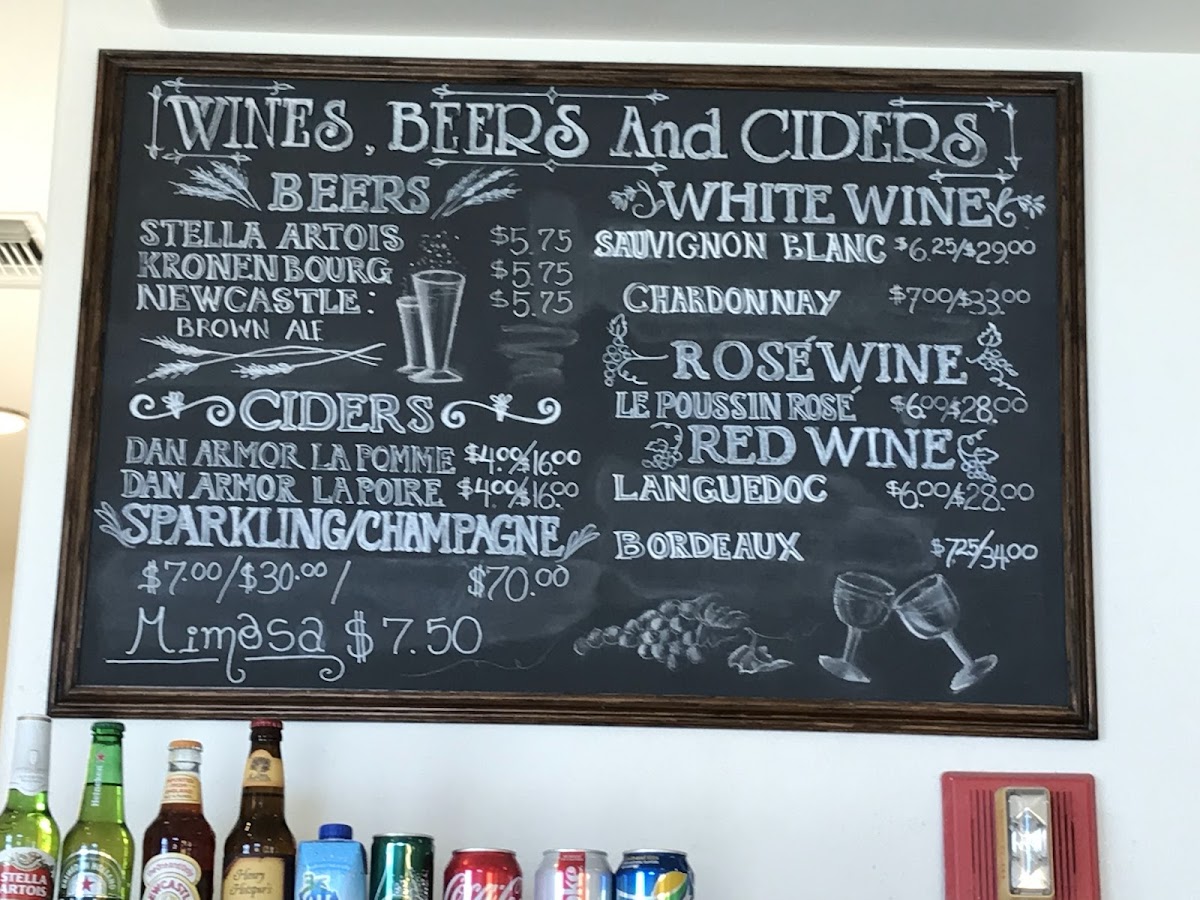 WINES, BEERS And CIDERS
BEERS
STELLA ARTOIS $5.75
KRONENBOURG $5.75
NEWCASTLE: $5.75
BROWN ALE
CIDERS
DAN ARMOR LA POMME $4.00/$16.00
DAN ARMOR LA POIRE $4.00/$16.00
SPARKLING/CHAMPAGNE
$7.00/$30.00/ $70.00
Mimosa $7.50
WHITE WINE
SAUVIGNON BLANC $6.25/$29.00
CHARDONNAY $7.00/$33.00
ROSÉ WINE
LE POUSSIN ROSÉ $6.00/$28.00
RED WINE
LANGUEDOC $6.00/$28.00
BORDEAUX $7.25/34.00
STELLA
ARTOIS
Heineken
Henry
Hotspur's
Coca-Cola